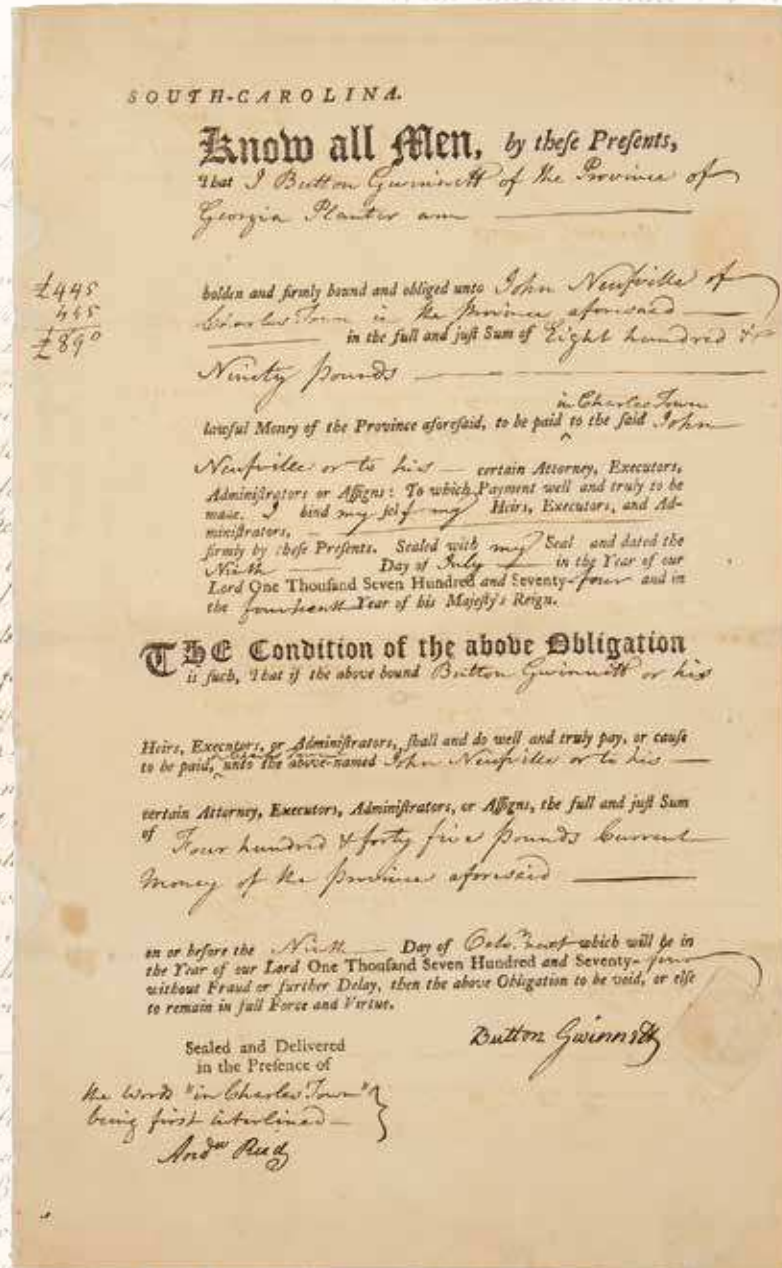 SOUTH-CAROLINA.
Know all Men, by these Presents,
That I Button Gwinnett of the Province of
Georgia Planter am
£445
445
£890
holden and firmly bound and obliged unto John Neufville of
Charles Town in the Province aforesaid
in the full and just Sum of Eight hundred &
Ninety pounds
in Charles Town
lawful Money of the Province aforesaid, to be paid ^ to the said John
Neufville or to his certain Attorney, Executors,
Administrators or Assigns: To which Payment well and truly to be
made, I bind my self my Heirs, Executors, and Ad-
ministrators,
firmly by these Presents. Sealed with my Seal and dated the
Ninth Day of July in the Year of our
Lord One Thousand Seven Hundred and Seventy-four and in
the fourteenth Year of his Majesty's Reign.
THE Condition of the above Obligation
is such, That if the above bound Button Gwinnett or his
Heirs, Executors, or Administrators, shall and do well and truly pay, or cause
to be paid, ^ unto the above-named John Neufville or to his
certain Attorney, Executors, Administrators, or Assigns, the full and just Sum
of Four hundred & forty five pounds Current
Money of the province aforesaid
on or before the Ninth Day of Octo.r next which will be in
the Year of our Lord One Thousand Seven Hundred and Seventy-four
without Fraud or further Delay, then the above Obligation to be void, or else
to remain in full Force and Virtue.
Sealed and Delivered
in the Presence of
Button Gwinnett
the Words "in Charles Town"
being first interlined
And.w Reid